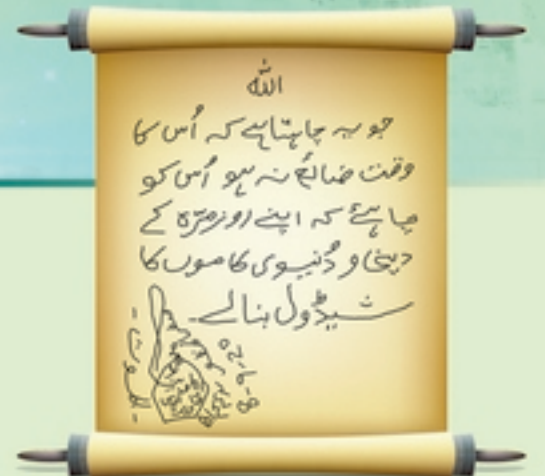 الله
جو یہ چاہتا ہے کہ اُس کا
وقت ضائع نہ ہو اُس کو
چاہئے کہ اپنے روزمرّہ کے
دینی و دُنیوی کاموں کا
شیڈول بنالے۔